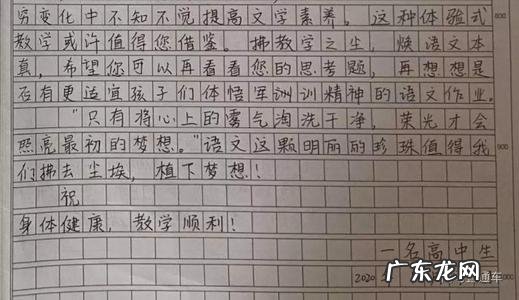 穷变化中不知不觉提高文学素养。这种体验式
800
教学或许值得您借鉴。拂教学之尘，焕语文本
真，希望您可以再看看您的思考题，再想想是
否有更适宜孩子们体悟军洲训精神的语文作业。
"只有将心上的雾气淘洗干净，荣光才会
照亮最初的梦想。"语文这颗明丽的珍珠值得我
900
们拂去尘埃，植下梦想！
祝
身体健康，教学顺利！
一名高中生
2020
通车
1000
广东龙网